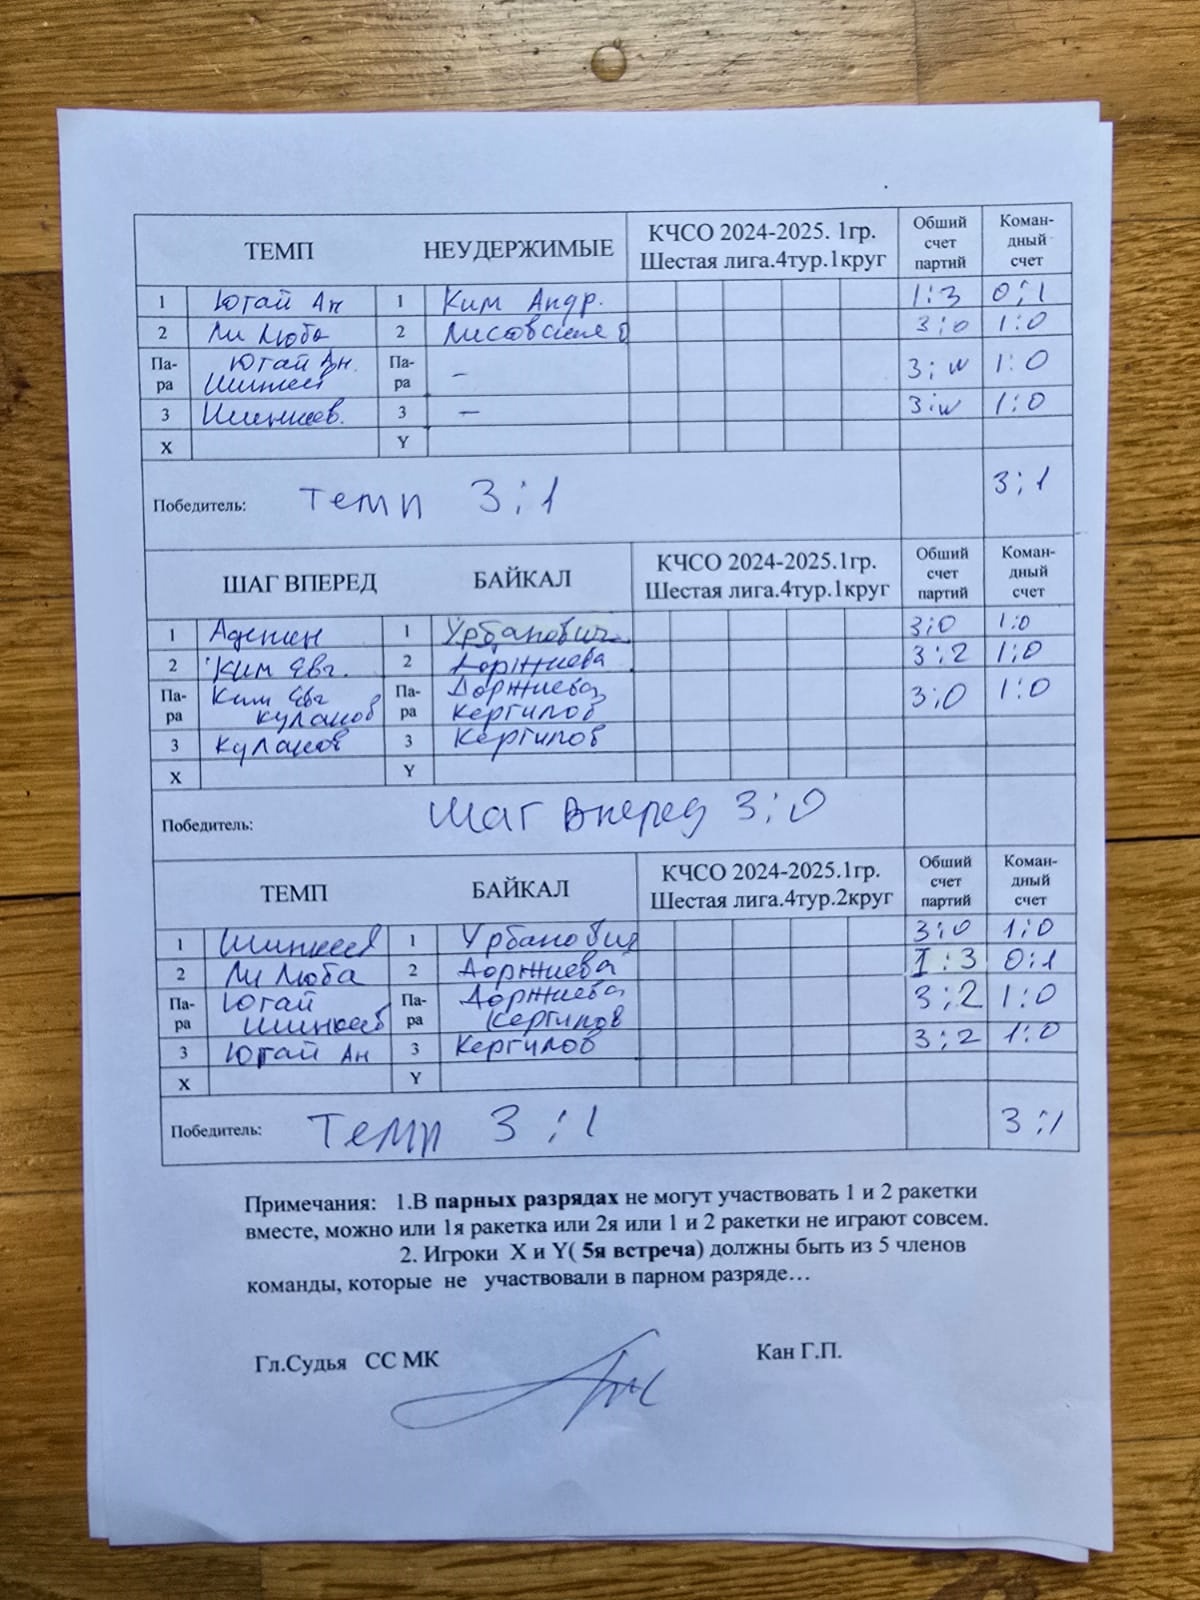 ТЕМП НЕУДЕРЖИМЫЕ КЧСО 2024-2025. 1гр. Шестая лига.4тур.1круг Обший счет партий Коман-дный счет
1 Югай Ан 1 Ким Андр. 1:3 0:1
2 Ли Люба 2 3:0 1:0
Па-ра Югай Ан. Па-ра – 3:w 1:0
3 Шинкеев. 3 – 3:w 1:0
X Y
Победитель: Темп 3:1 3:1
ШАГ ВПЕРЕД БАЙКАЛ КЧСО 2024-2025.1гр. Шестая лига.4тур.1круг Обший счет партий Коман-дный счет
1 1 Урбанович 3:0 1:0
2 Ким Евг. 2 Доржиева 3:2 1:0
Па-ра Ким Евг Кулаков Па-ра Доржиева Кергилов 3:0 1:0
3 Кулаков 3 Кергилов
X Y
Победитель: Шаг вперед 3:0
ТЕМП БАЙКАЛ КЧСО 2024-2025.1гр. Шестая лига.4тур.2круг Обший счет партий Коман-дный счет
1 Шинкеев 1 Урбанович 3:0 1:0
2 Ли Люба 2 Доржиева 1:3 0:1
Па-ра Югай Шинкеев Па-ра Доржиева Кергилов 3:2 1:0
3 Югай Ан 3 Кергилов 3:2 1:0
X Y
Победитель: Темп 3:1 3:1
Примечания: 1.В парных разрядах не могут участвовать 1 и 2 ракетки
вместе, можно или 1я ракетка или 2я или 1 и 2 ракетки не играют совсем.
2. Игроки X и Y( 5я встреча) должны быть из 5 членов
команды, которые не участвовали в парном разряде…
Гл.Судья СС МК Кан Г.П.